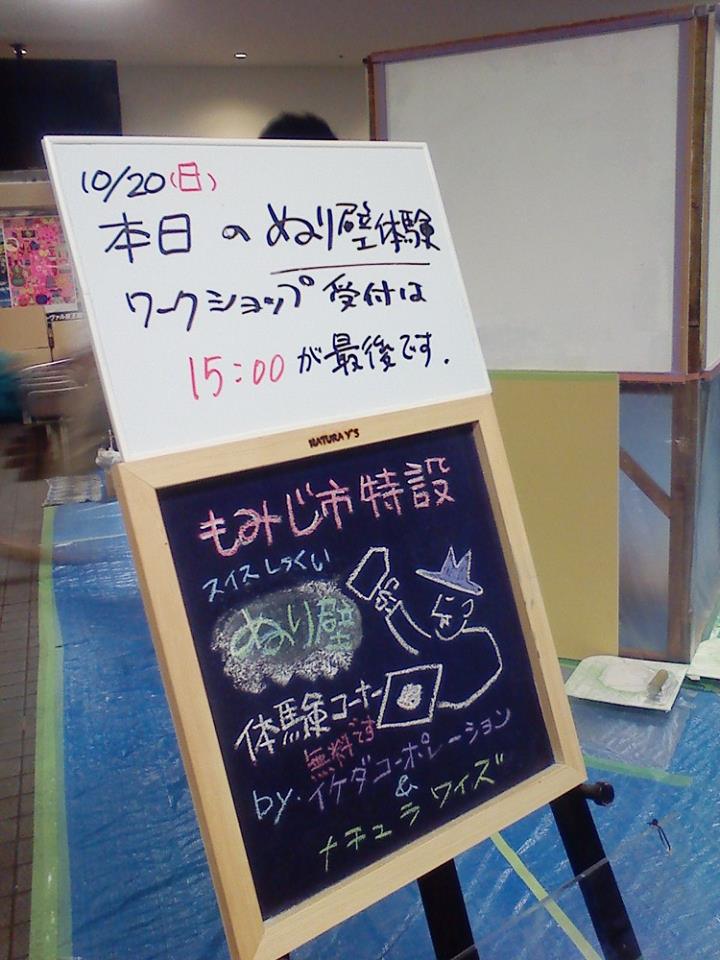 10/20(日)
本日のぬり壁体験
ワークショップ受付は
15:00が最後です.
NATURAY'S
もみじ市特設
スイスしっくい
ぬり壁
体験コーナー
無料です
by.イケダコーポレーション
&
ナチュラワイズ